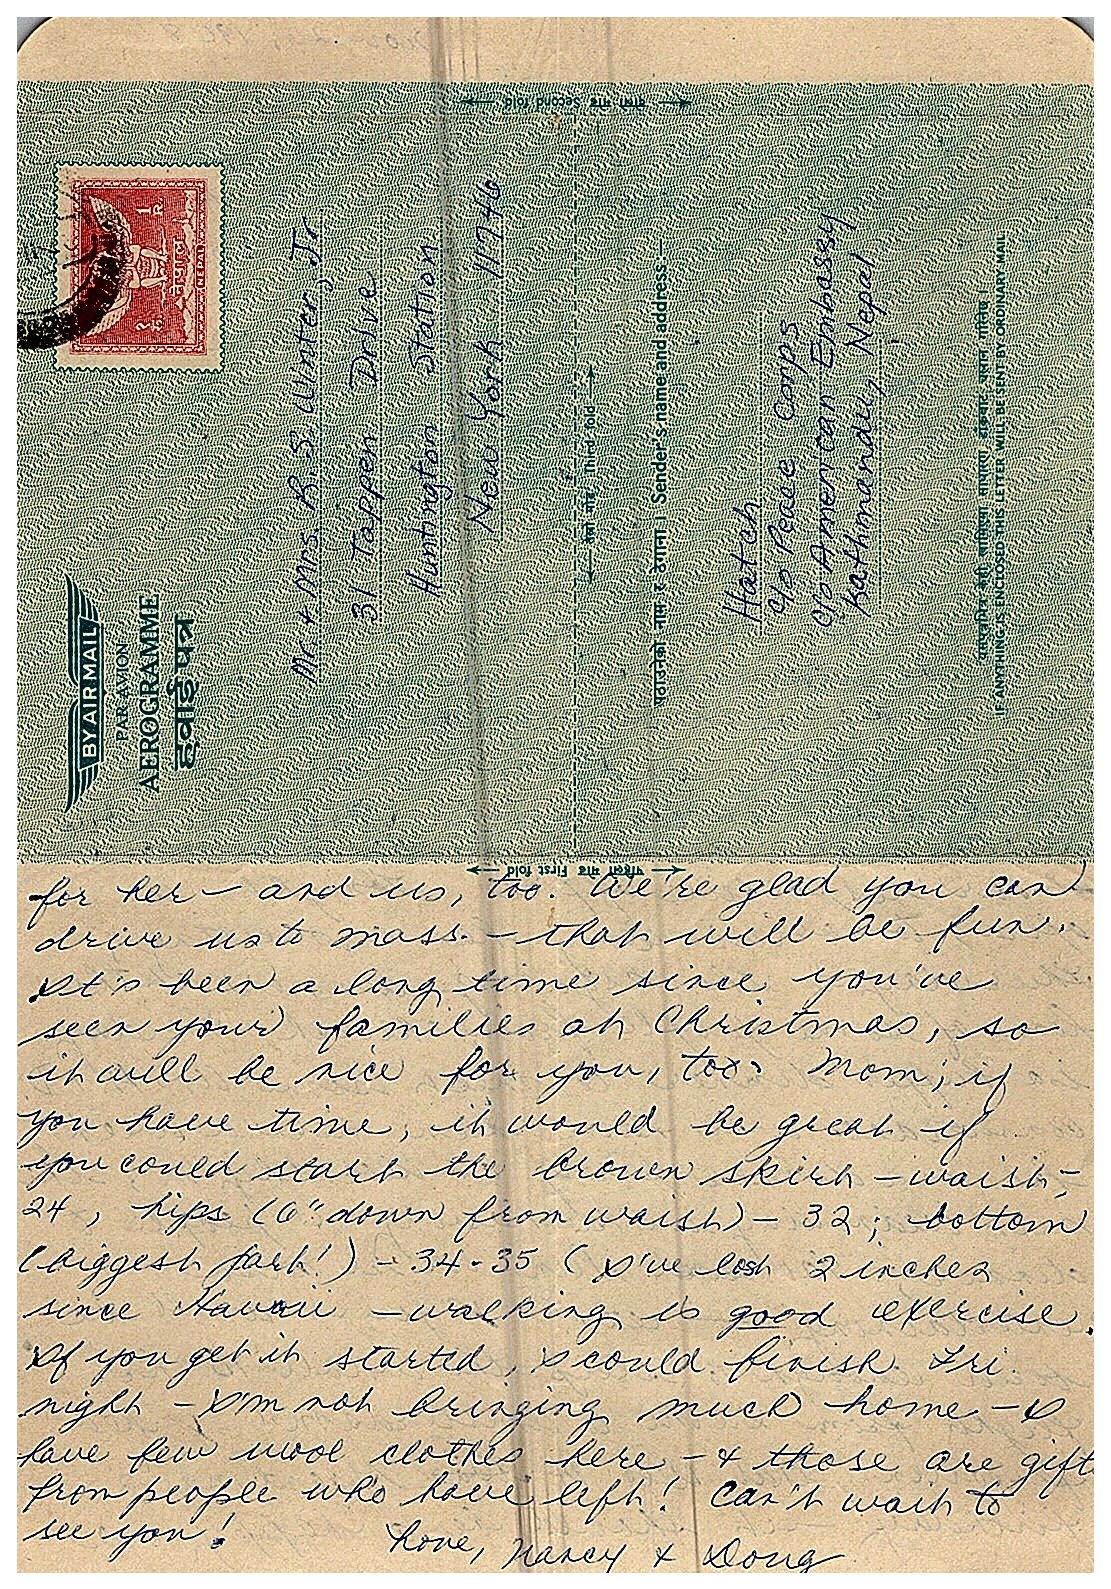 ← दोस्रो मोड Second fold →
१ रु. नेपाल 1 R.
(NEPAL)
BY AIR MAIL
PAR AVION
AEROGRAMME
हवाई पत्र
Mr. + Mrs. R. S. Winters, Jr
31 Tappen Drive
Huntington Station
New York 11746
← तेस्रो मोड Third fold →
पठाउनेको नाम र ठेगाना । Sender's name and address :—
Hatch
c/o Peace Corps
c/o American Embassy
Kathmandu, Nepal
IF ANYTHING IS ENCLOSED THIS LETTER WILL BE SENT BY ORDINARY MAIL
← पहिलो मोड First fold →
for her – and us, too. We're glad you can
drive us to Mass. – that will be fun.
It's been a long time since you've
seen your families at Christmas, so
it will be nice for you, too. Mom, if
you have time, it would be great if
you could start the brown skirt – waist –
24, hips (6" down from waist) – 32; bottom
(biggest part!) – 34-35 (I've lost 2 inches
since Hawaii – walking is good exercise.
If you get it started, I could finish Fri.
night – I'm not bringing much home – I
have few wool clothes here – + those are gifts
from people who have left! Can't wait to
see you!
Love, Nancy + Doug